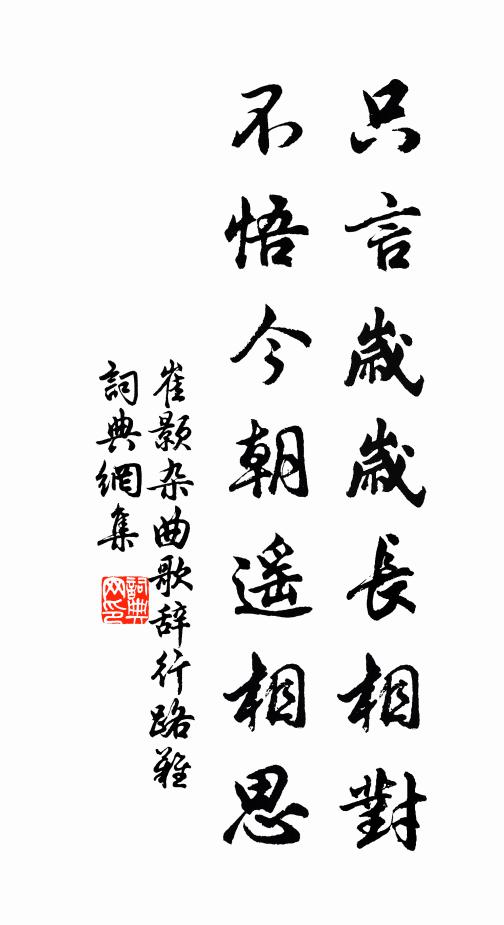 只言歲歲長相對
不悟今朝遥相思
崔顥杂曲歌辞行路難
詞典網集